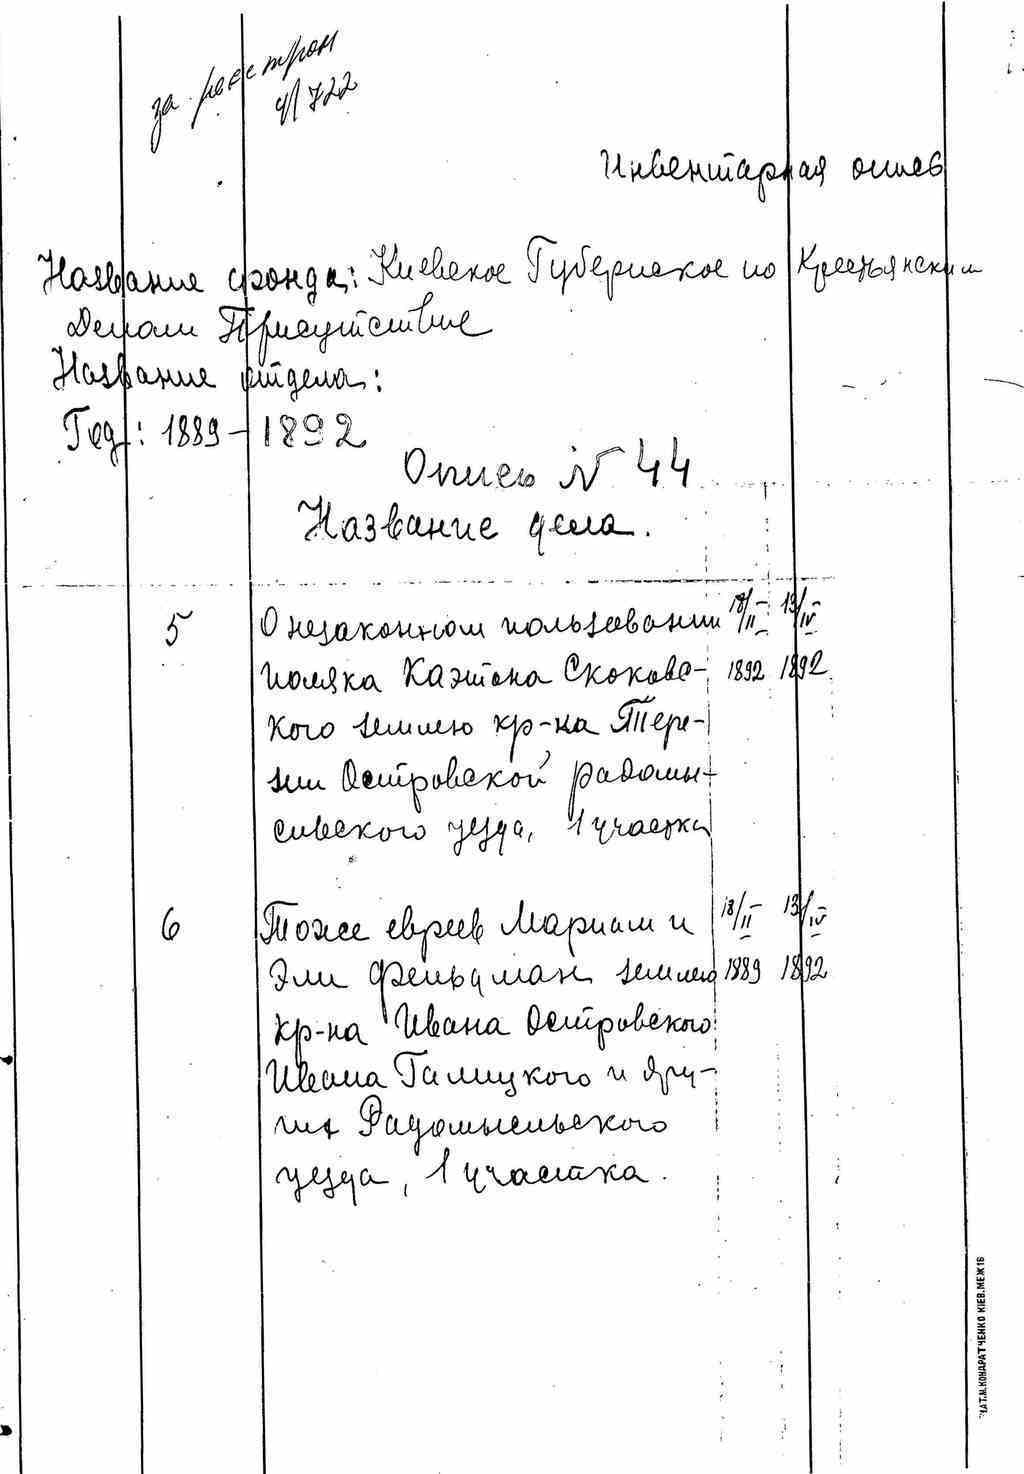 за реестром
ч/722
Инвентарная опись
Название фонда: Киевское Губернское по Крестьянским
Делам Присутствие
Название отдела:
Год: 1889-1892
Опись № 44
Название дела.
5 О незаконном пользовании 18/II- 13/IV-
поляка Каэтона Скоковс- 1892 1892
кого землею кр-на Тере-
зии Островской радомы-
сльского уезда, 1 участка
6 Тоже евреев Мариам и 18/II- 13/IV-
Эли Фельдман землею 1889 1892
кр-на Ивана Островского
Ивана Галицкого и дру-
гих Радомысльского
уезда, 1 участка.
ЧАТ.М.КОНДРАТЧЕНКО КІЕВ.МЕЖ16